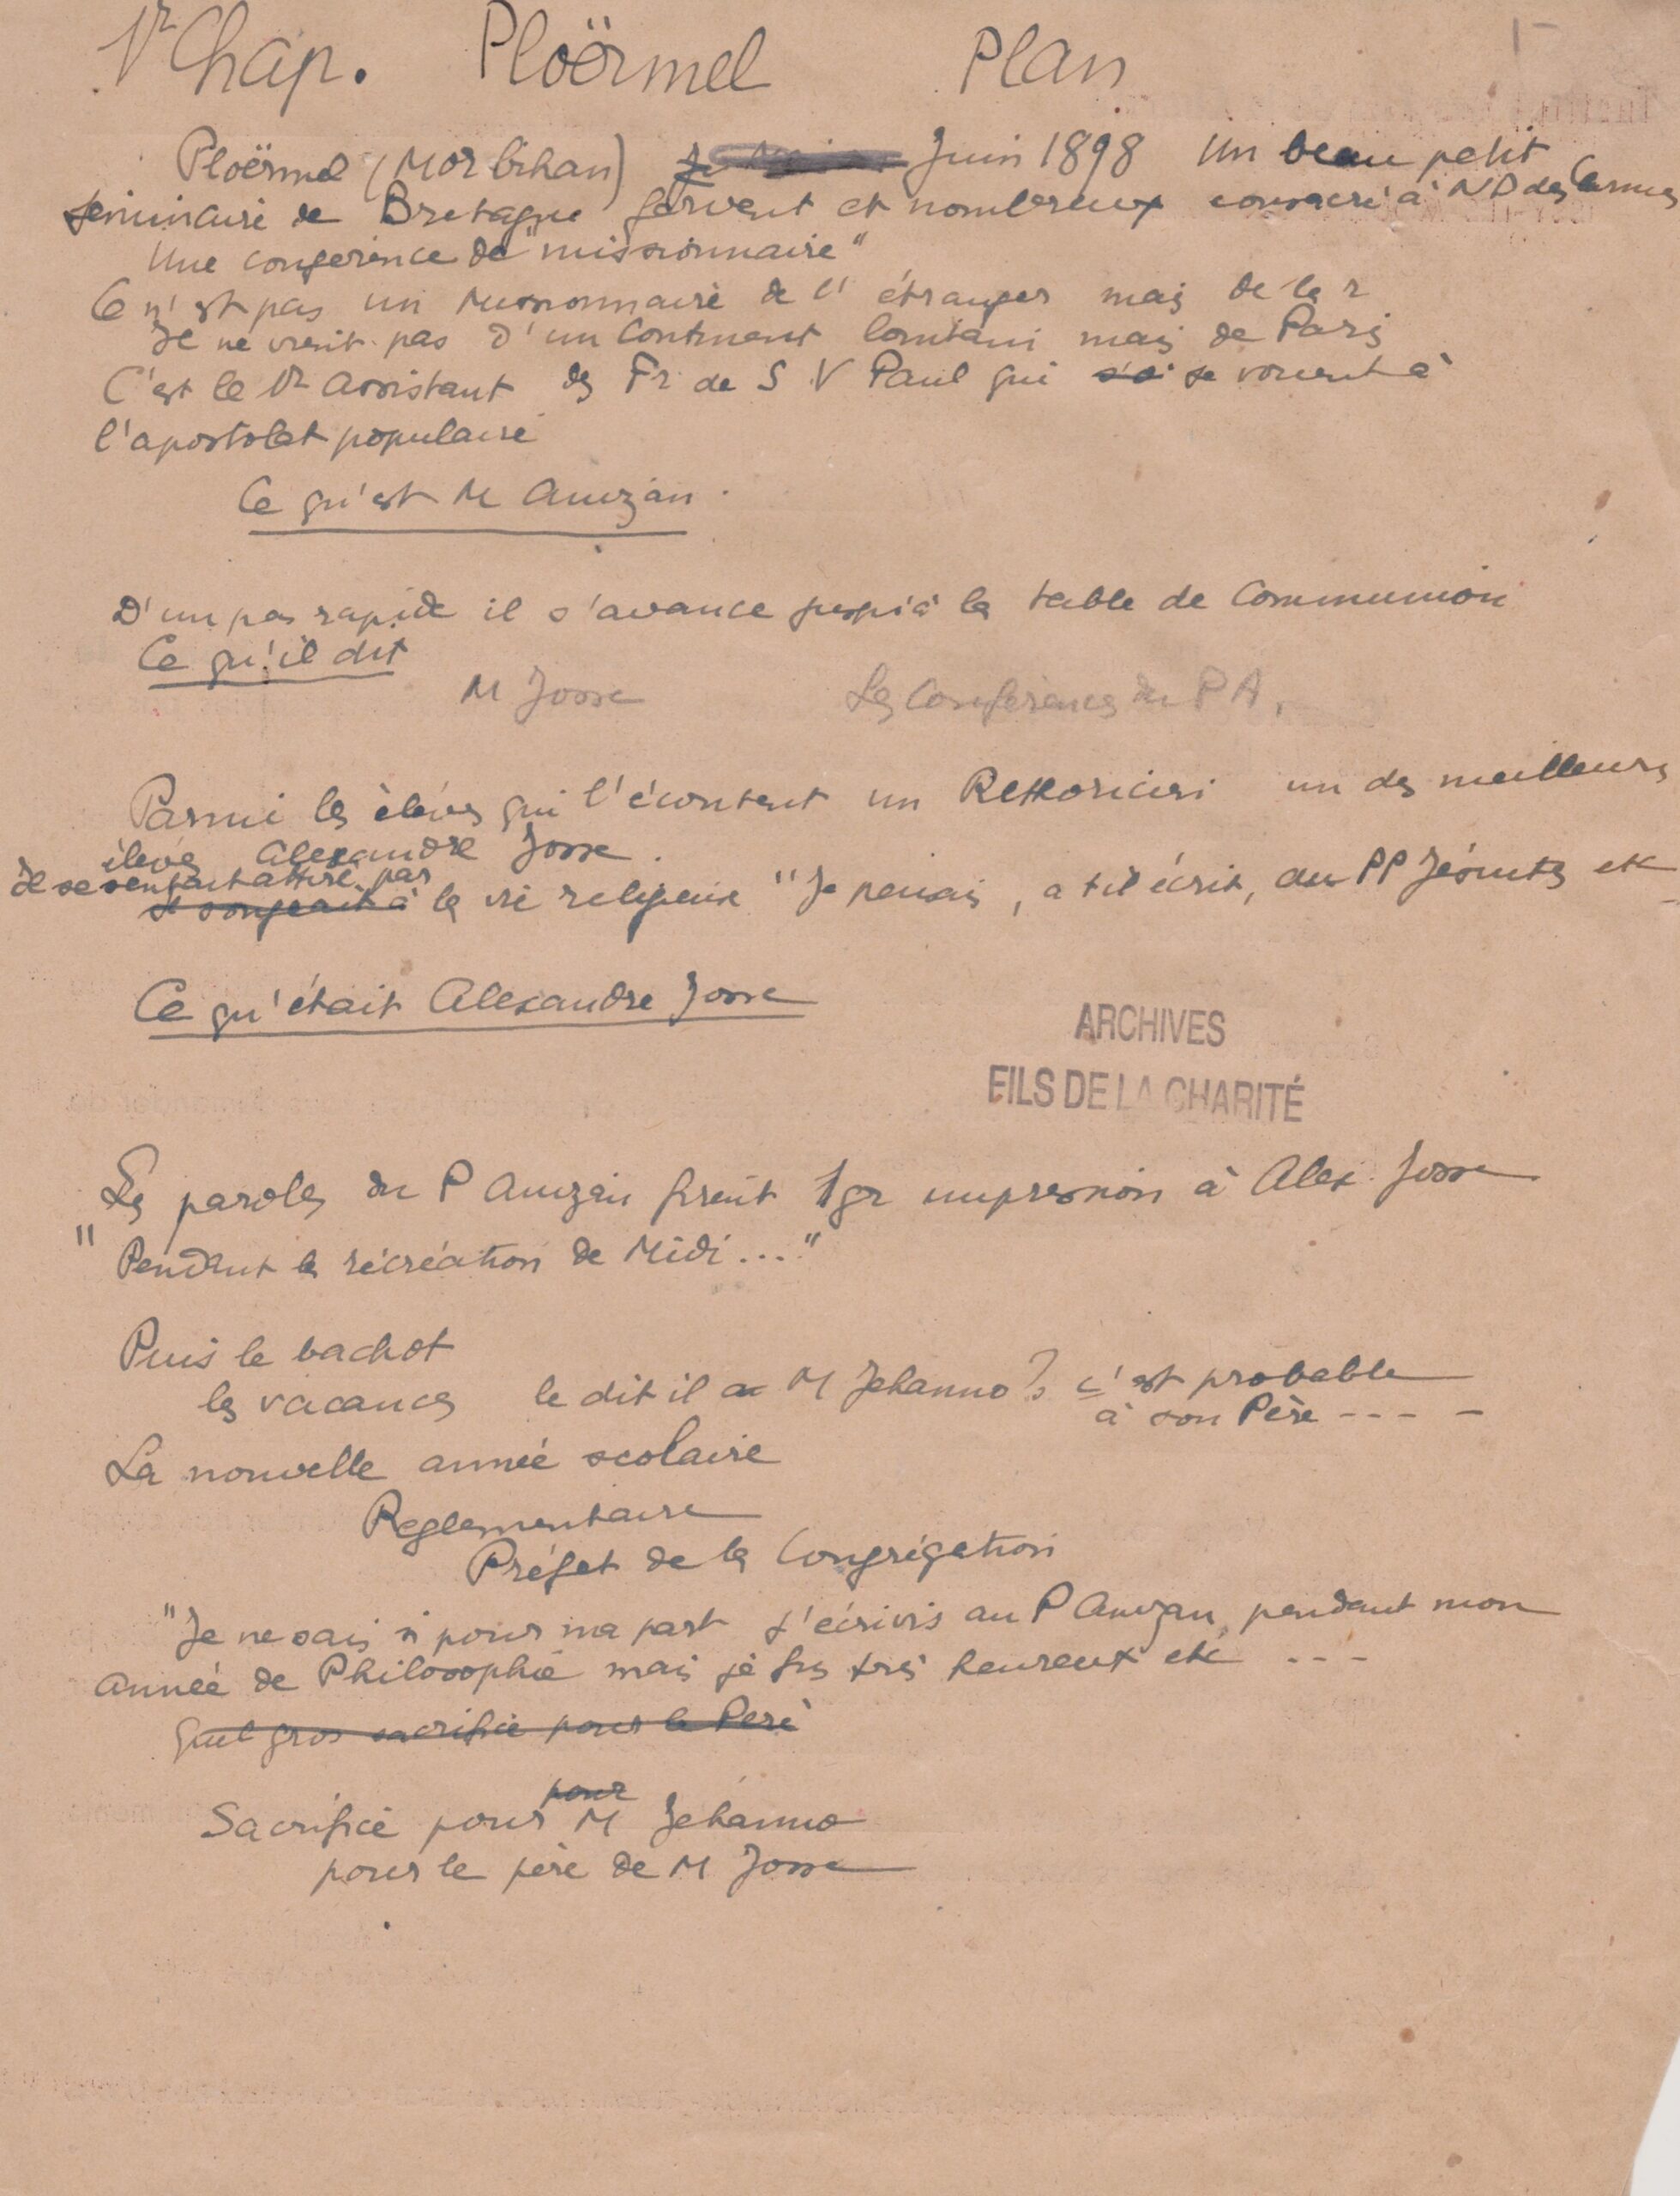 1r Chap. Ploërmel Plan
Ploërmel (Morbihan) Juin 1898 Un beau petit
séminaire de Bretagne fervent et nombreux consacré à ND des Carmes
Une conférence de "missionnaire"
Ce n'est pas un missionnaire de l'étranger mais de la
Il ne vient pas d'un Continent lointain mais de Paris
C'est le 1r assistant des Fr de S V Paul qui se vouent à
l'apostolat populaire
Ce qu'est M Anizan.
D'un pas rapide il s'avance jusqu'à la table de Communion
Ce qu'il dit
M Josse Les Conférences du P A.
Parmi les élèves qui l'écoutent un Rethoricien un des meilleurs
élèves Alexandre Josse.
Il se sentait attiré par
et songeait à la vie religieuse "Je pensais, a t il écrit, aux PP Jésuites etc
Ce qu'était Alexandre Josse
ARCHIVES
FILS DE LA CHARITÉ
Les paroles du P Anizan firent 1 gr impression à Alex. Josse
"Pendant la récréation de Midi..."
Puis le bachot
les vacances le dit il à M Jehanno? c'est probable
à son Père - - - -
La nouvelle année scolaire
Reglementaire
Préfet de la Congrégation
"Je ne sais si pour ma part j'écrivis au P Anizan, pendant mon
année de Philosophie mais je fus très heureux etc - - -
Quel gros sacrifice pour le Père
pour
Sacrifice pour M Jehanno
pour le père de M Josse